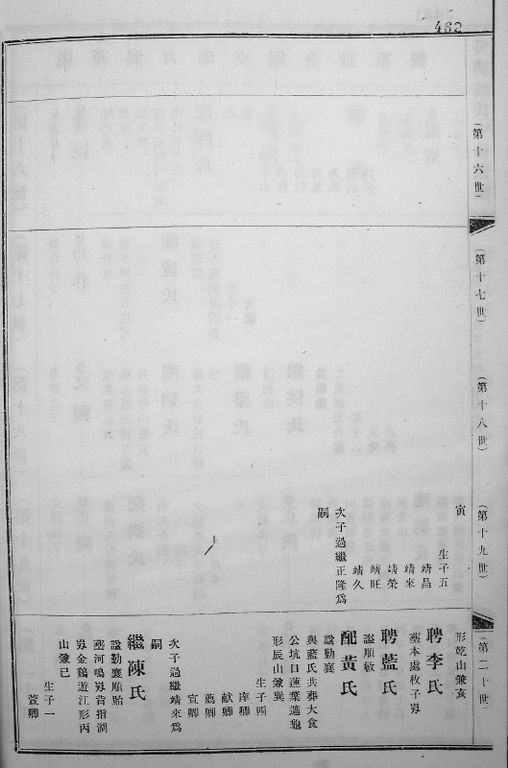 462
(第十六世)
(第十七世)
(第十八世)
(第十九世)
寅
生子五
靖昌
靖來
靖榮
靖旺
靖久
次子過繼正隆爲
嗣
(第二十世)
形乾山兼亥
聘李氏
塟本處枚子
聘藍氏
諡順敏
配黃氏
諡勤襄
與藍氏共葬大食
公坑口蓮葉蓋龜
形辰山兼巽
生子四
庠卿
獻卿
薦卿
宣卿
次子過繼靖來爲
嗣
繼陳氏
諡勤襄順貽
塟河鳴肯指湖
金鷄遊江形丙
山兼巳
生子一
萱卿